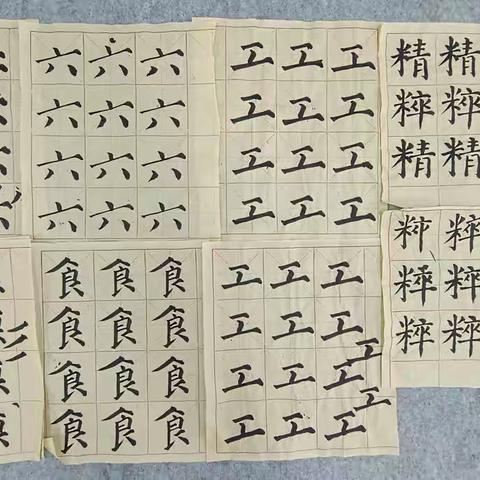 六六六
六六六
六六六
六六六
工工工
工工工
工工工
工工工
精精
粹粹
精精
食食食
食食食
食食食
食食食
工工工
工工工
工工工工
工工工工
粹
粹粹
粹粹